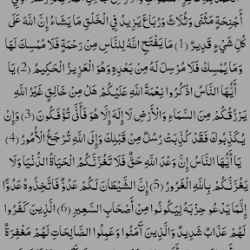 أَجْنِحَةٍ مَّثْنَىٰ وَثُلَاثَ وَرُبَاعَ يَزِيدُ فِي الْخَلْقِ مَا يَشَاءُ إِنَّ اللَّهَ عَلَىٰ
كُلِّ شَيْءٍ قَدِيرٌ (1) مَا يَفْتَحِ اللَّهُ لِلنَّاسِ مِنْ رَحْمَةٍ فَلَا مُمْسِكَ لَهَا
وَمَا يُمْسِكْ فَلَا مُرْسِلَ لَهُ مِنْ بَعْدِهِ وَهُوَ الْعَزِيزُ الْحَكِيمُ (2) يَا
أَيُّهَا النَّاسُ اذْكُرُوا نِعْمَةَ اللَّهِ عَلَيْكُمْ هَلْ مِنْ خَالِقٍ غَيْرُ اللَّهِ
يَرْزُقُكُمْ مِنَ السَّمَاءِ وَالْأَرْضِ لَا إِلَهَ إِلَّا هُوَ فَأَنَّىٰ تُؤْفَكُونَ (3) وَإِنْ
يُكَذِّبُوكَ فَقَدْ كُذِّبَتْ رُسُلٌ مِنْ قَبْلِكَ وَإِلَى اللَّهِ تُرْجَعُ الْأُمُورُ (4)
يَا أَيُّهَا النَّاسُ إِنَّ وَعْدَ اللَّهِ حَقٌّ فَلَا تَغُرَّنَّكُمُ الْحَيَاةُ الدُّنْيَا وَلَا
يَغُرَّنَّكُمْ بِاللَّهِ الْغَرُورُ (5) إِنَّ الشَّيْطَانَ لَكُمْ عَدُوٌّ فَاتَّخِذُوهُ عَدُوًّا
إِنَّمَا يَدْعُو حِزْبَهُ لِيَكُونُوا مِنْ أَصْحَابِ السَّعِيرِ (6) الَّذِينَ كَفَرُوا
لَهُمْ عَذَابٌ شَدِيدٌ وَالَّذِينَ آمَنُوا وَعَمِلُوا الصَّالِحَاتِ لَهُمْ مَغْفِرَةٌ